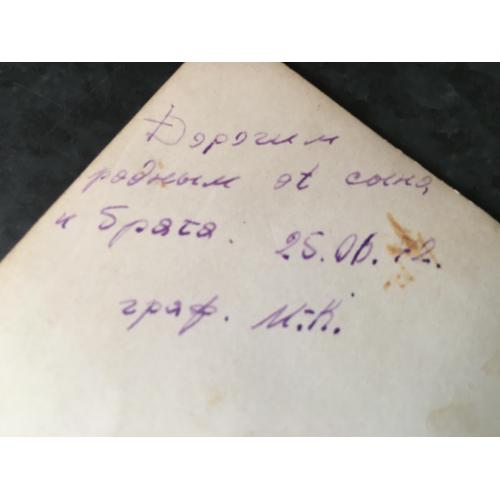 Дорогим
родным от сына
и брата. 25.06.72.
граф. М.-К.